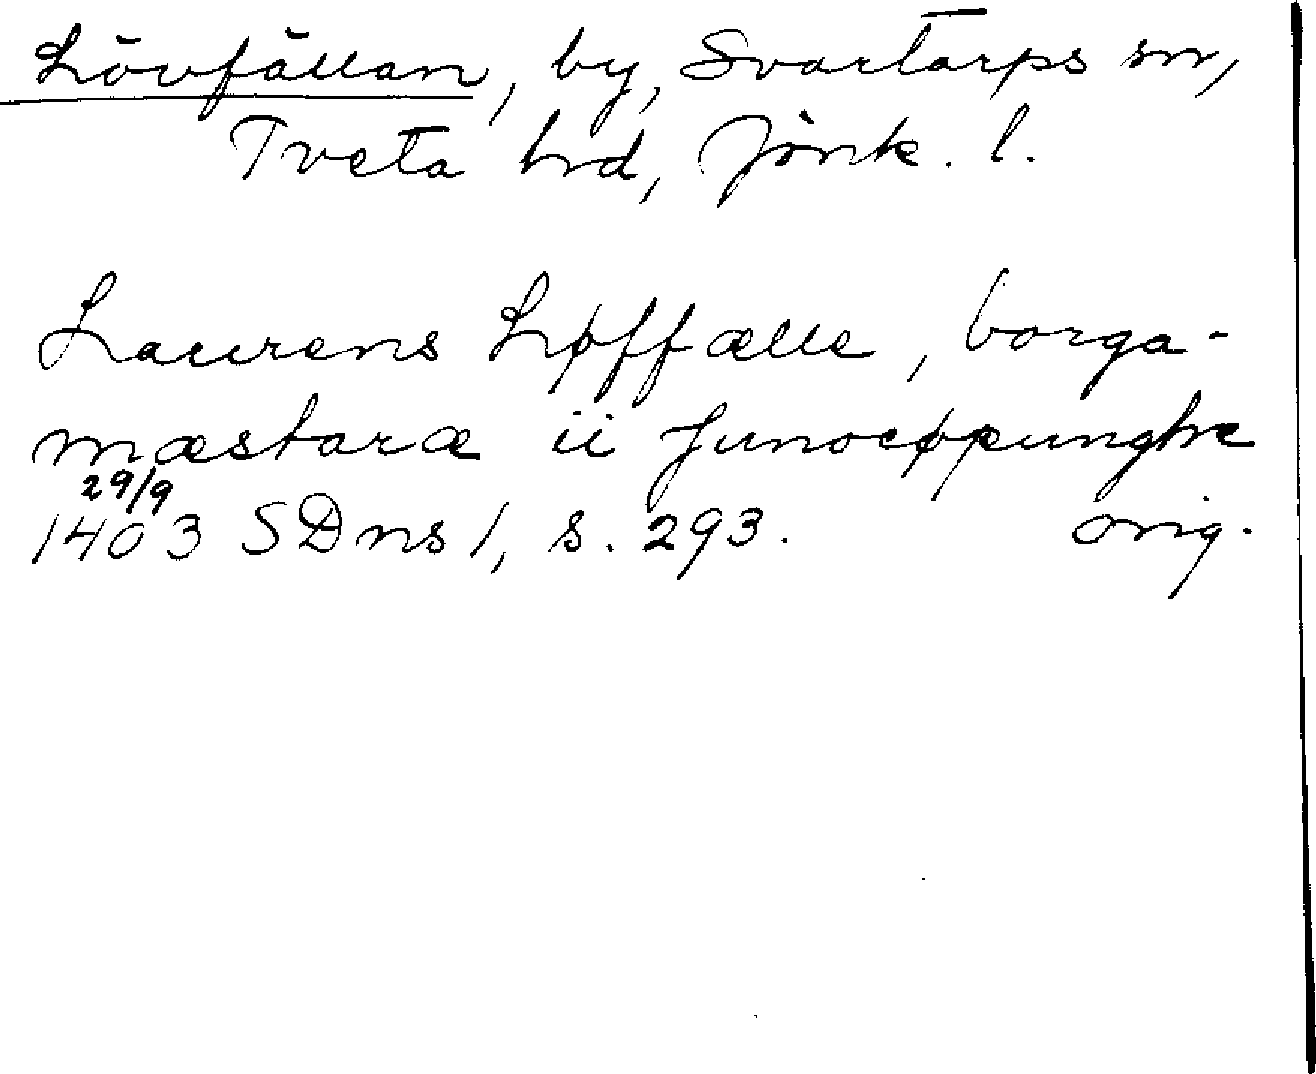 Lövfällan, by, Svartarps sn,
Tveta hrd, Jönk. l.
Laurens Løffælle, borga-
mæstaræ ii Junocøpunghe
29/9
1403 SDns 1, s. 293. orig.